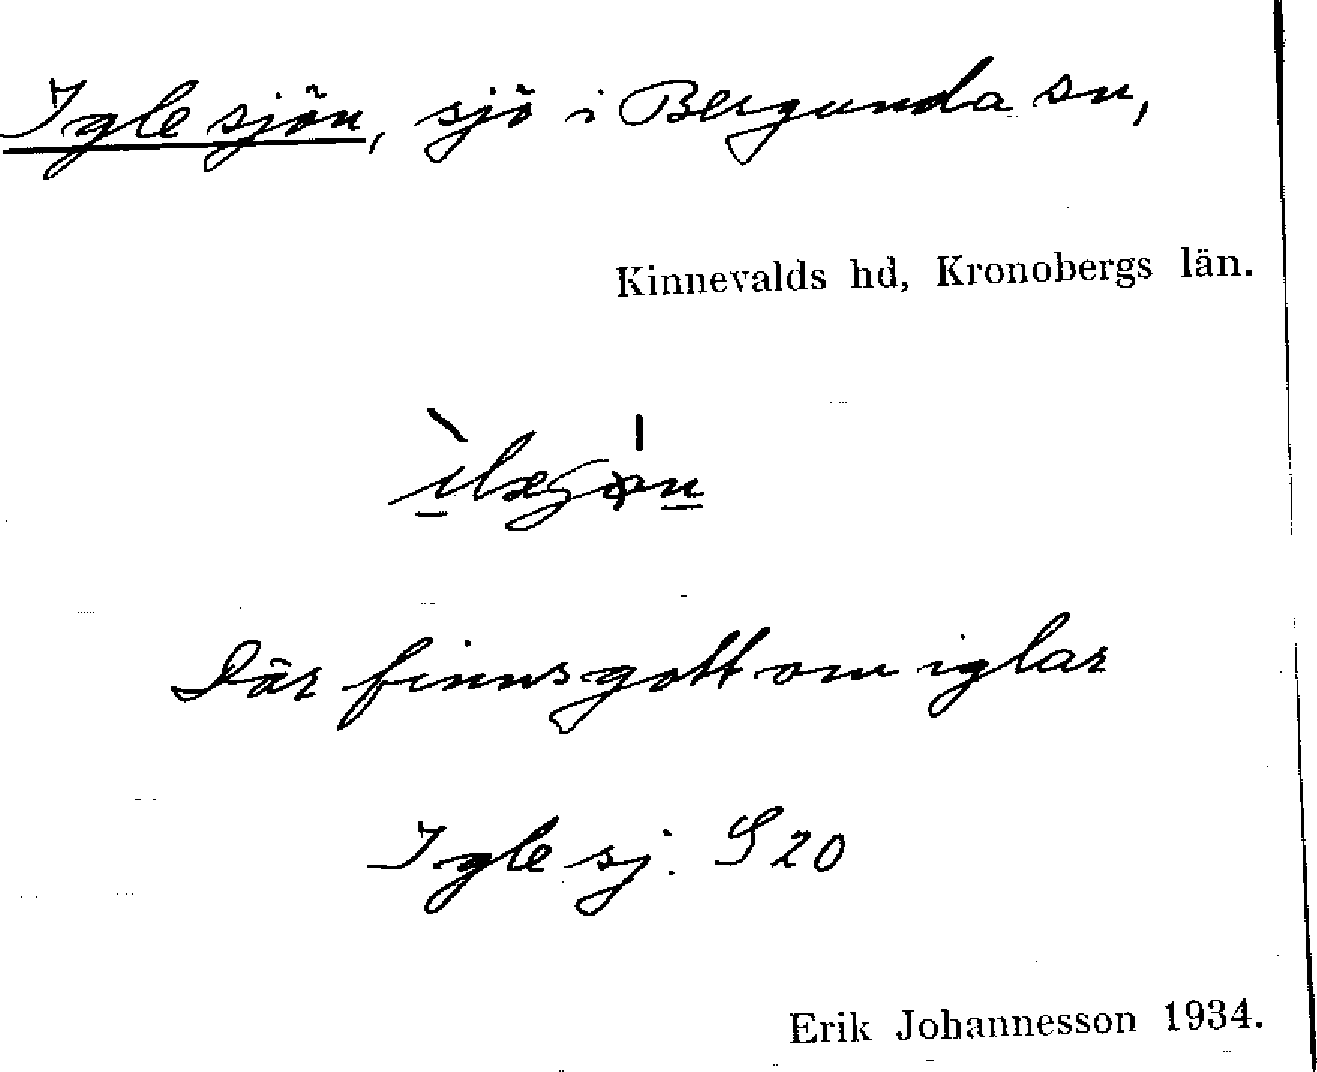 Iglesjön, sjö i Bergunda sn,
Kinnevalds hd, Kronobergs län.
Där finns gott om iglar
Igle sj. S 20
Erik Johannesson 1934.